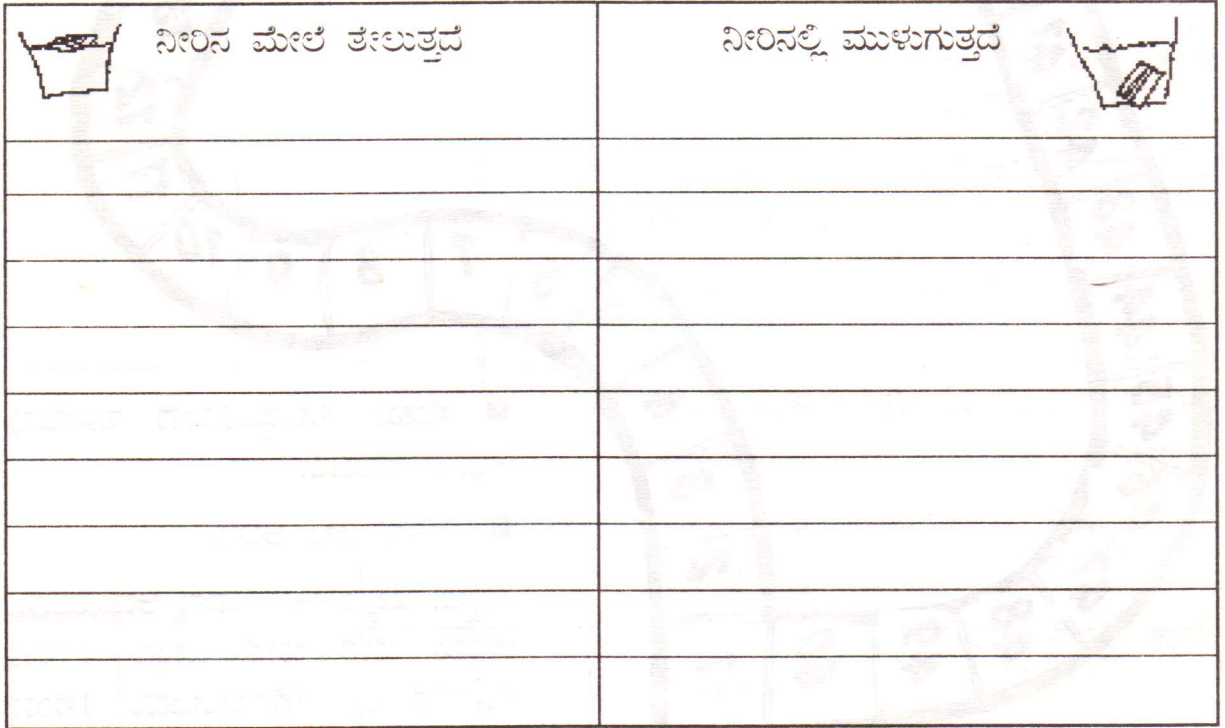 ನೀರಿನ ಮೇಲೆ ತೇಲುತ್ತದೆ
ನೀರಿನಲ್ಲಿ ಮುಳುಗುತ್ತದೆ